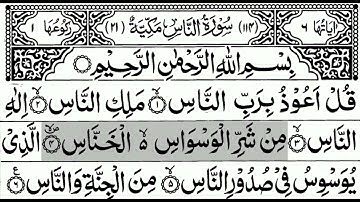 اٰيَاتُهَا ٦ (١١٤) سُوْرَةُ النَّاسِ مَكِّيَّةٌ (٢١) رُكُوْعُهَا ١
بِسْمِ اللّٰهِ الرَّحْمٰنِ الرَّحِيْمِ
قُلْ اَعُوْذُ بِرَبِّ النَّاسِ ۙ﴿۱﴾ مَلِكِ النَّاسِ ۙ﴿۲﴾ اِلٰهِ
النَّاسِ ۙ﴿۳﴾ مِنْ شَرِّ الْوَسْوَاسِ ۙ۬ الْخَنَّاسِ ۪ۙ﴿۴﴾ الَّذِيْ
يُوَسْوِسُ فِيْ صُدُوْرِ النَّاسِ ۙ﴿۵﴾ مِنَ الْجِنَّةِ وَالنَّاسِ ﴿۶﴾